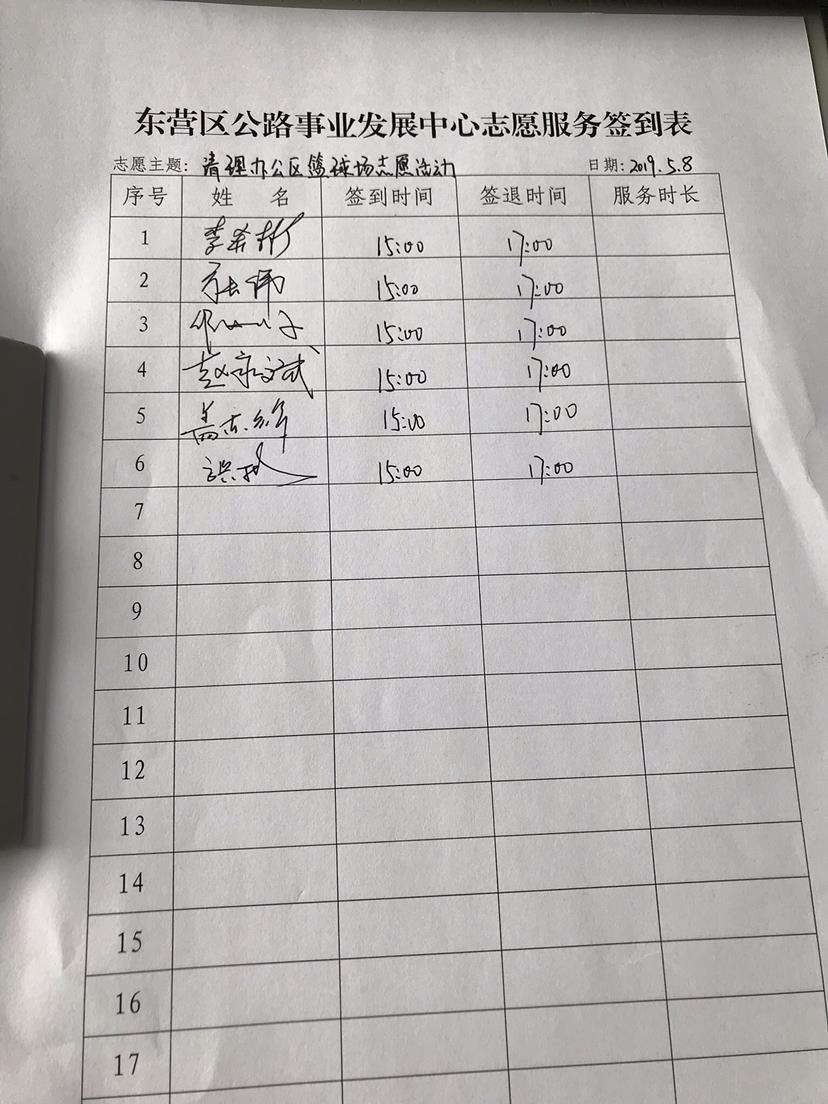 东营区公路事业发展中心志愿服务签到表
志愿主题: 清理办公区篮球场志愿活动 日期: 2019.5.8
序号 姓 名 签到时间 签退时间 服务时长
1 李希彬 15:00 17:00
2 15:00 17:00
3 15:00 17:00
4 15:00 17:00
5 15:00 17:00
6 15:00 17:00
7
8
9
10
11
12
13
14
15
16
17